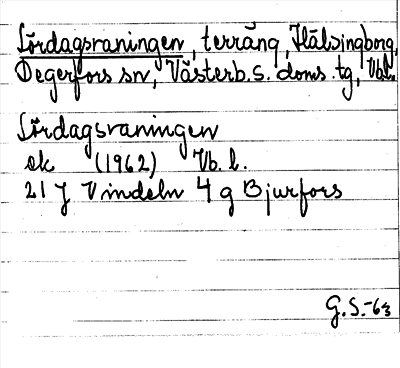 Lördagsraningen, terräng, Hälsingborg,
Degerfors sn, Västerb. s. doms. tg, Vbl.
Lördagsraningen
ek (1962) Vb. l.
21 J Vindeln 4 g Bjurfors
G.S.-63